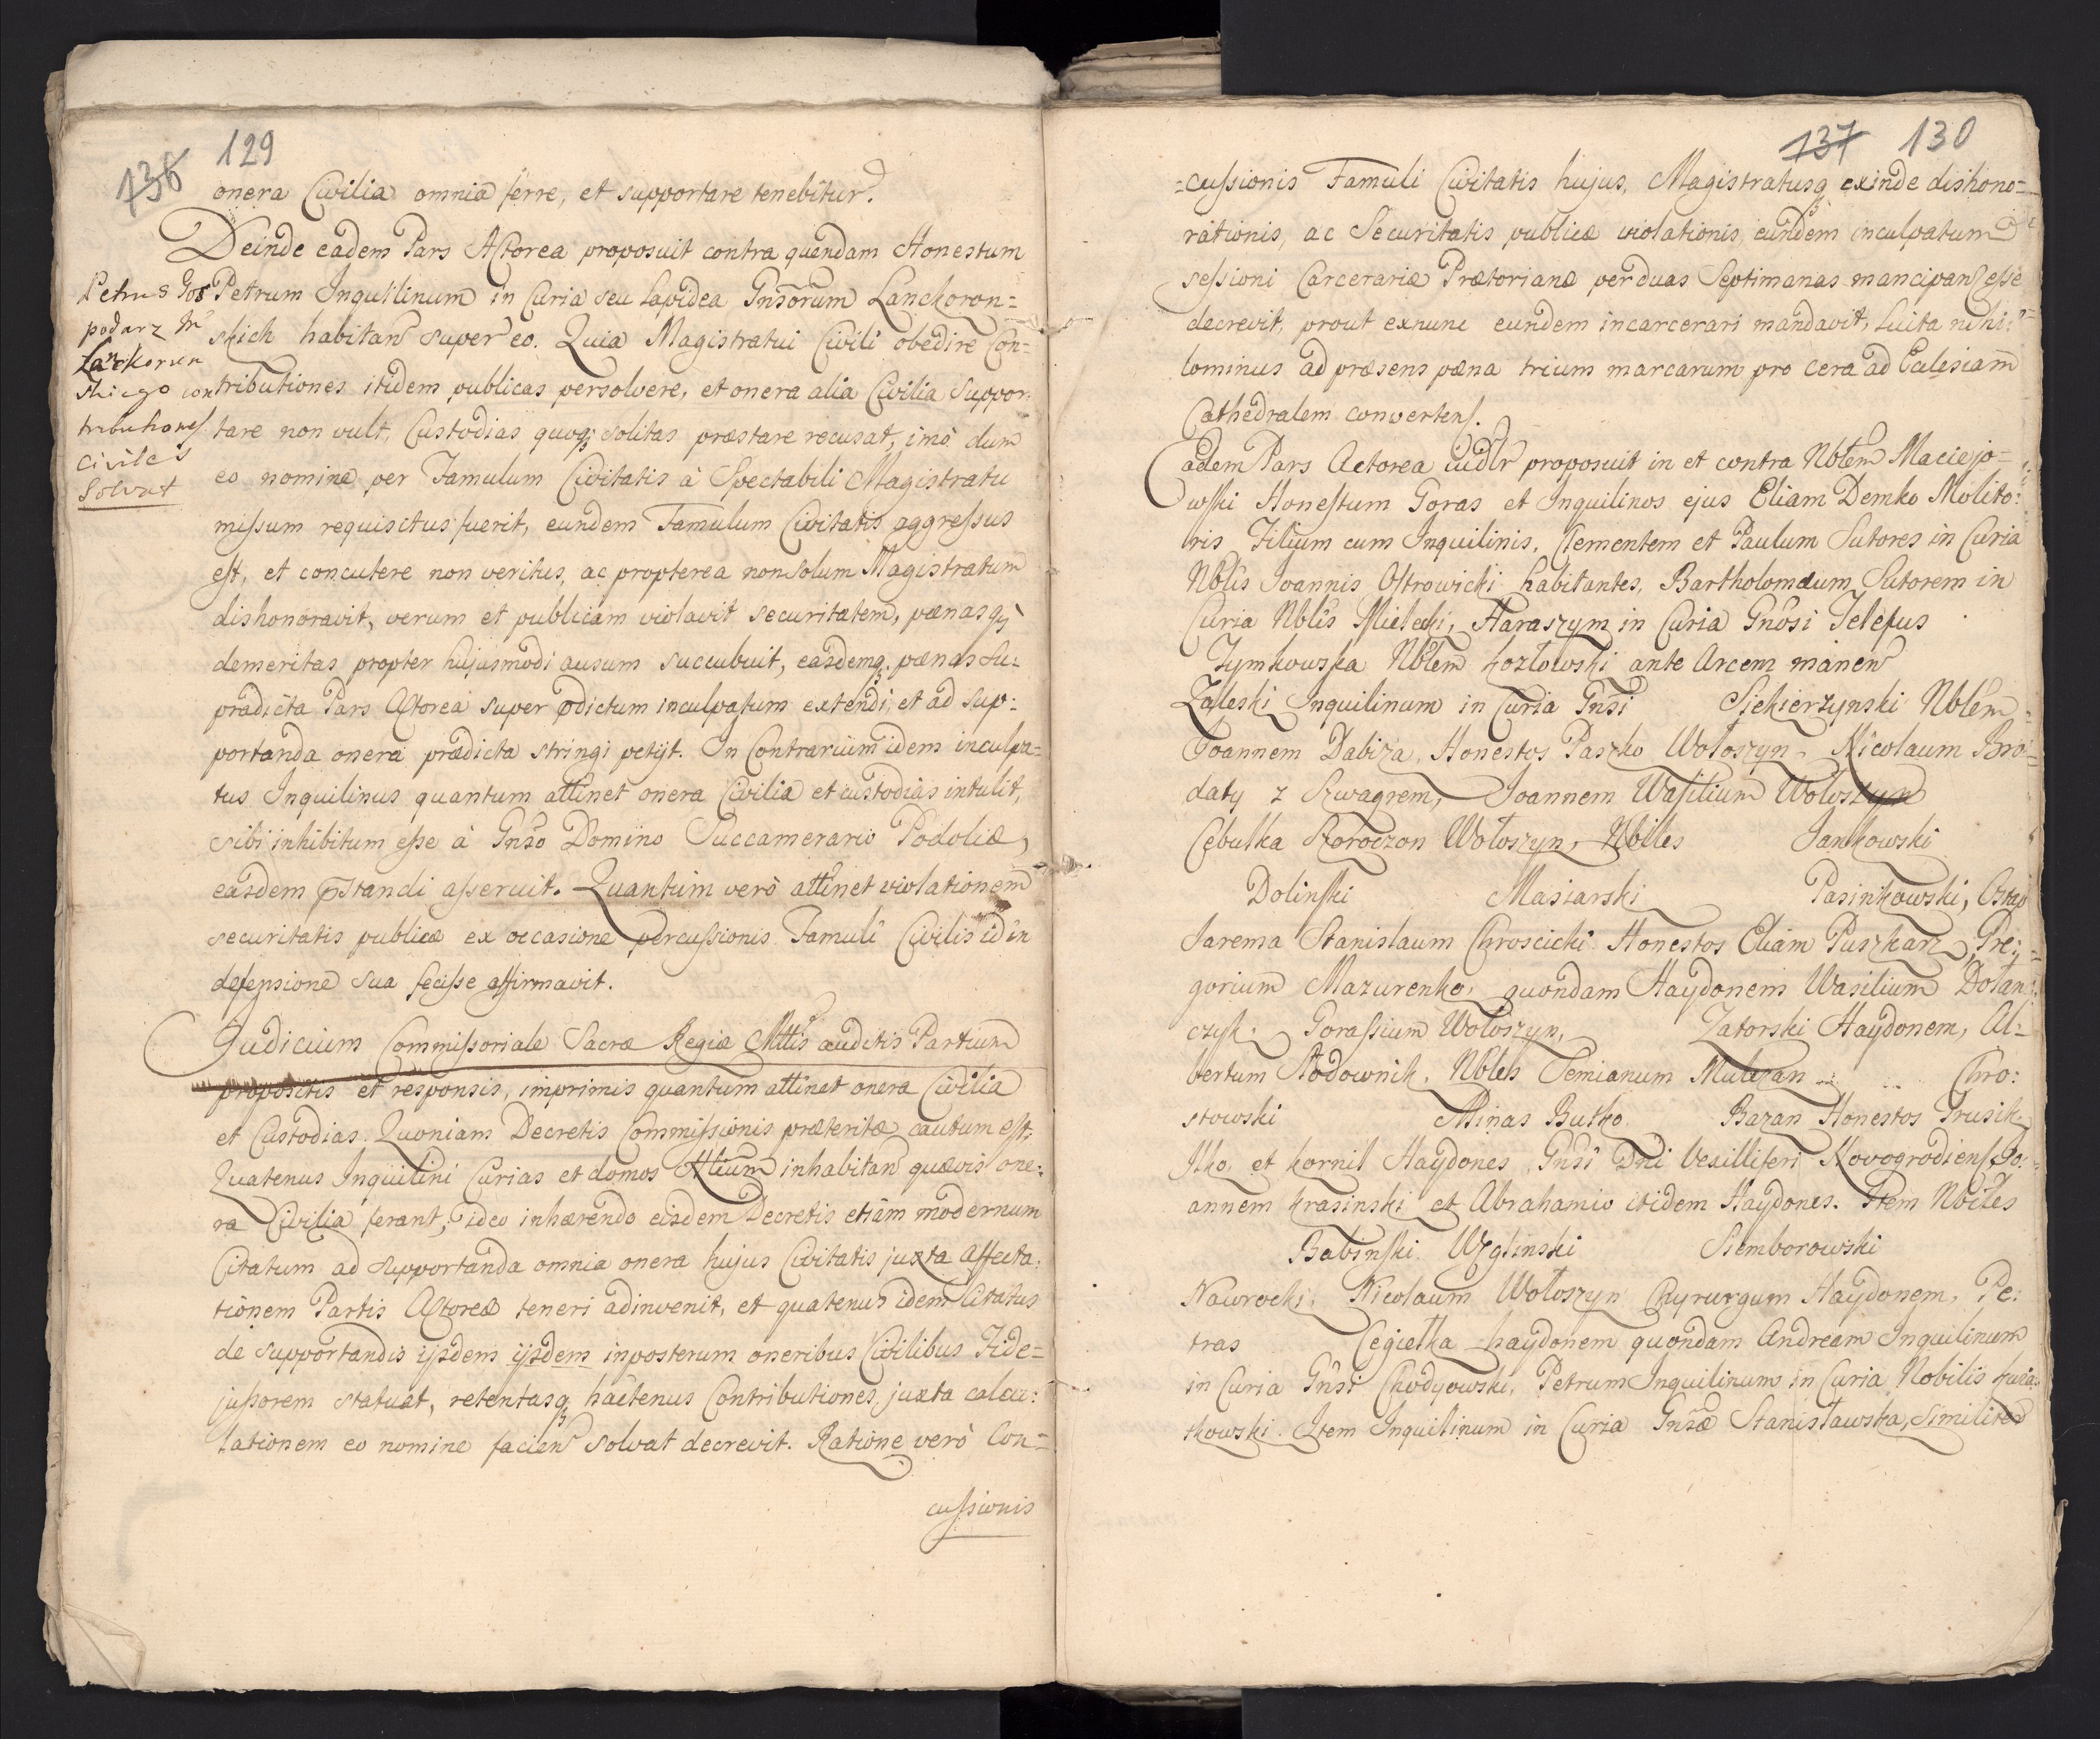 136 129
onera Civilia omnia ferre, et supportare tenebitur.
Deinde eadem Pars Actorea proposuit contra quendam Honestum
Petrum Inquilinum in Curia seu Lapidea Gnsorum Lanckoron=
skich habitan super eo. Quia Magistratui Civili obedire Con=
tributiones itidem publicas persolvere, et onera alia Civilia Suppor:
tare non vult, Custodias quoq; solitas præstare recusat, imò dum
eo nomine per Famulum Civitatis à Spectabili Magistratu
missum requisitus fuerit, eundem Famulum Civitatis aggressus
est, et concutere non veritus, ac propterea non solum Magistratum
dishonoravit, verum et publicam violavit securitatem, pœnasq;
demeritas propter hujusmodi ausum succubuit, easdemq; pœnas Su:
pradicta Pars Actorea super pdictum inculpatum extendi, et ad sup:
portanda onera prædicta stringi petijt. In Contrarium idem inculpa=
tus Inquilinus quantum attinet onera Civilia et custodias intulit,
sibi inhibitum esse à Gnso Domino Succamerario Podoliæ,
easdem pstandi asseruit. Quantum verò attinet violationem
securitatis publicæ ex occasione percussionis Famuli Civilis id in
defensione sua fecisse affirmavit.
Judicium Commissoriale Sacræ Regiæ Mttis auditis Partium
propositis et responsis, imprimis quantum attinet onera Civilia
et Custodias. Quoniam Decretis Commissionis præteritæ cautum est,
Quatenus Inquilini Curias et domos Alium inhabitan quævis one:
ra Civilia ferant, ideo inhærendo eisdem Decretis etiam modernum
Citatum ad supportanda omnia onera hujus Civitatis juxta Affecta:
tionem Partis Actoreæ teneri adinvenit, et quatenus idem Citatus
de supportandis ijsdem ijsdem inposterum oneribus Civilibus Fide=
jussorem statuat, retentasq; hactenus Contributiones juxta calcu:
lationem eo nomine facien solvat decrevit. Ratione verò Con=
cussionis
Petrus Gos
podarz
Lanckorun
skiego con
tributiones
civiles
solvat
137 130
=cussionis Famuli Civitatis hujus, Magistratusq; exinde dishono=
rationis, ac Securitatis publicæ violationis, eundem inculpatum
sessioni Carcerariæ Prætorianæ per duas Septimanas mancipan esse
decrevit, prout exnunc eundem incarcerari mandavit, Luita nihi:
lominus ad præsens pœna trium marcarum pro cera ad Eclesiam
Cathedralem converten.
Eadem Pars Actorea proposuit in et contra Nblem Maciejo=
wski Honestum Goras et Inquilinos ejus Eliam Demko Molito:
ris Filium cum Inquilinis, Clementem et Paulum Sutores in Curia
Nblis Joannis Ostrowicki habitantes, Bartholomæum Sutorem in
Curia Nblis Mielecki, Haraszym in Curia Gnosi Telefus
Tymkowska Nblem Kozłowski ante Arcem manen
Zaleski Inquilinum in Curia Gnsi Siekierzynski Nblem
Joannem Dabiza, Honestos Paszko Wołoszyn, Nicolaum Bro=
daty z Szwagrem, Joannem Wasilium Wołoszyn
Cebulka Wołoszyn, Nbiles Jankowski
Dolinski Masiarski Pasinkowski, Ostap
Jarema Stanislaum Chroscicki Honestos Eliam Puszkarz, Gre:
gorium Mazurenko, quondam Haydonem Wasilium Dołan:
czyk, Gorassium Wołoszyn, Zatorski Haydonem, Al:
bertum Słodownik, Nbles Semianum Mulczan Chro:
stowski Minas Butko Bazan Honestos Trusik
Ilko, et Kornil Haydones Gnsi Dni Vexilliferi Novogrodien Jo:
annem Krasinski et Abrahamio itidem Haydones. Item Nbiles
Babinski Wzglinski Siemborowski
Nawrocki, Nicolaum Wołoszyn Chyrurgum Haydonem, Pe:
tras Cegiełka haydonem quondam Andream Inquilinum
in Curia Gnsi Chodyowski, Petrum Inquilinum in Curia Nobilis
tkowski. Item Inquilinum in Curia Gnsæ Stanisławska, similiter